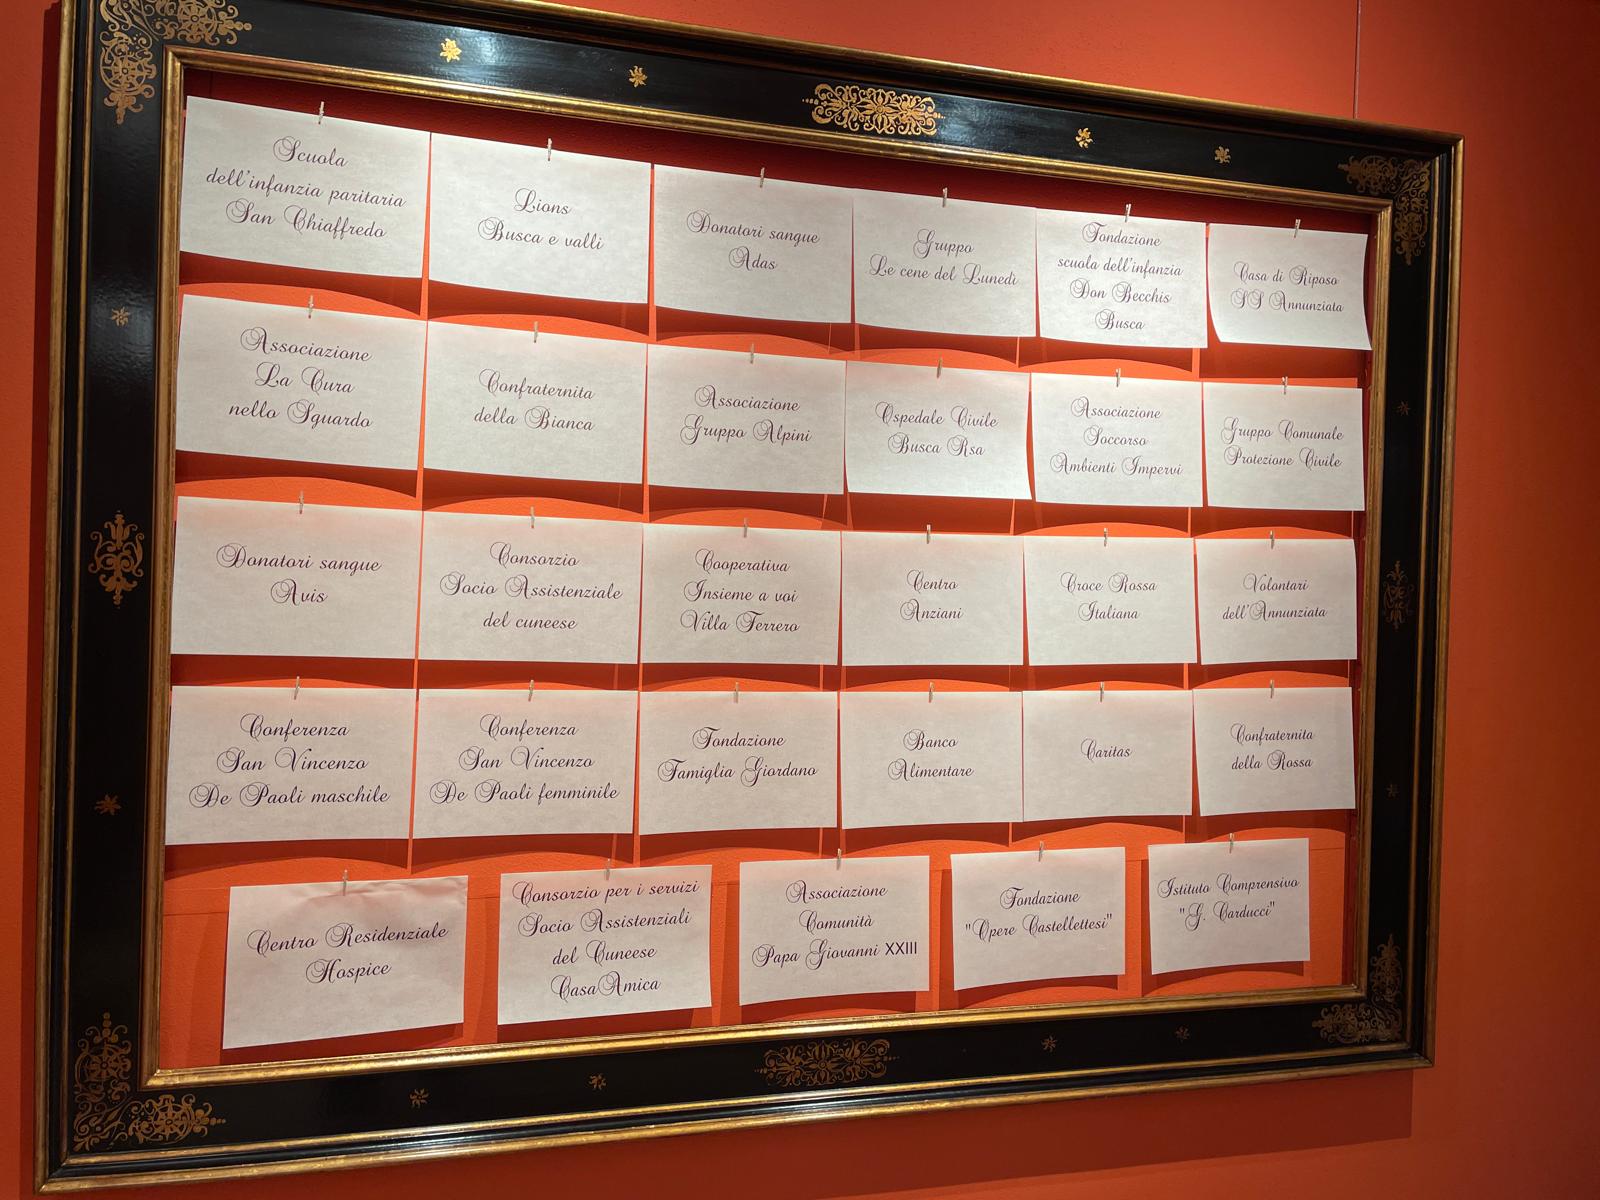 Scuola
dell'infanzia paritaria
San Chiaffredo
Lions
Busca e valli
Donatori sangue
Adas
Gruppo
Le cene del Lunedì
Fondazione
scuola dell'infanzia
Don Becchis
Busca
Casa di Riposo
SS Annunziata
Associazione
La Cura
nello Sguardo
Confraternita
della Bianca
Associazione
Gruppo Alpini
Ospedale Civile
Busca Rsa
Associazione
Soccorso
Ambienti Impervi
Gruppo Comunale
Protezione Civile
Donatori sangue
Avis
Consorzio
Socio Assistenziale
del cuneese
Cooperativa
Insieme a voi
Villa Ferrero
Centro
Anziani
Croce Rossa
Italiana
Volontari
dell'Annunziata
Conferenza
San Vincenzo
De Paoli maschile
Conferenza
San Vincenzo
De Paoli femminile
Fondazione
Famiglia Giordano
Banco
Alimentare
Caritas
Confraternita
della Rossa
Centro Residenziale
Hospice
Consorzio per i servizi
Socio Assistenziali
del Cuneese
CasaAmica
Associazione
Comunità
Papa Giovanni XXIII
Fondazione
"Opere Castellettesi"
Istituto Comprensivo
"G. Carducci"